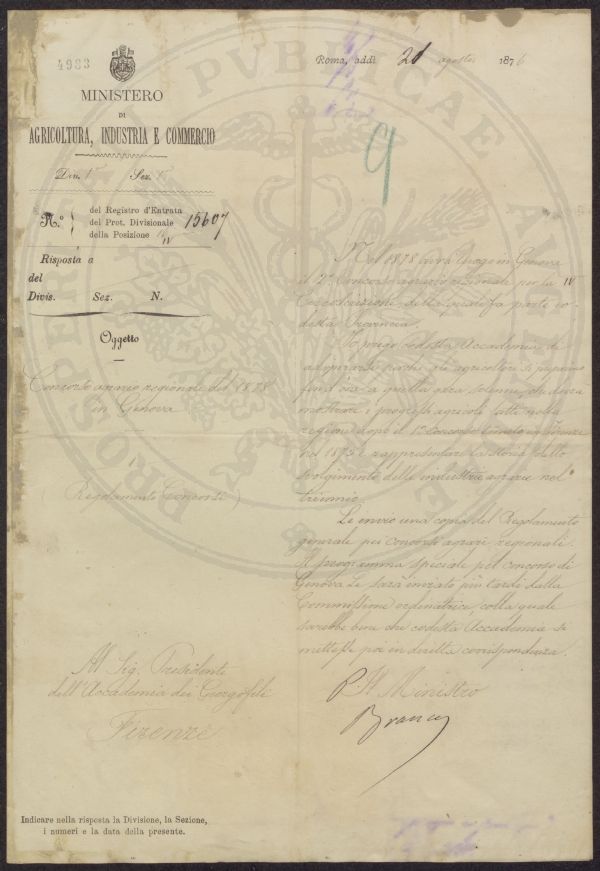 4983
MINISTERO
DI
AGRICOLTURA, INDUSTRIA E COMMERCIO
Div. 1ª Sez. 1ª
N.º
del Registro d'Entrata
del Prot. Divisionale 15607
della Posizione IV
Risposta a
del
Divis. Sez. N.
Oggetto
Concorso agrario regionale del 1878
in Genova
1
(Regolamento Concorsi)
Al Sig. Presidente
dell'Accademia dei Georgofili
Firenze
Indicare nella risposta la Divisione, la Sezione,
i numeri e la data della presente.
Roma, addì 21 agosto 1876
9
Nel 1878 avrà luogo in Genova
il 2º Concorso agrario regionale per la IV
Circoscrizione della quale fa parte co-
desta Provincia.
Io prego codesta Accademia di
adoprarsi perché gli agricoltori si preparino
fin d'ora a quella gara solenne, che dovrà
mostrare i progressi agricoli fatti nella
regione dopo il 1º concorso tenuto in Firenze
nel 1875 e rappresentare la storia dello
svolgimento delle industrie agrarie nel
triennio.
Le invio una copia del Regolamento
generale pei concorsi agrari regionali.
Il programma speciale pel concorso di
Genova Le sarà inviato più tardi dalla
Commissione ordinatrice, colla quale
sarebbe bene che codesta Accademia si
mettesse poi in diretta corrispondenza.
P. Il Ministro
Branca
PROSPERITATI PUBLICAE